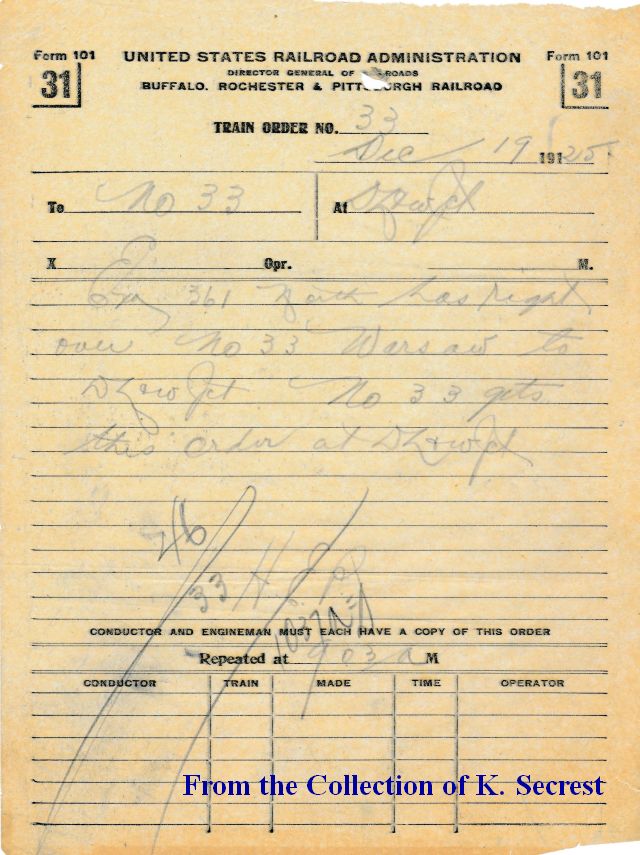 Form 101 UNITED STATES RAILROAD ADMINISTRATION Form 101
31 DIRECTOR GENERAL OF RAILROADS 31
BUFFALO, ROCHESTER & PITTSBURGH RAILROAD
TRAIN ORDER NO. 33
Dec 19 191 25
To No 33 At DL&W Jct
X Opr. M.
361 North has right
over No 33 Warsaw to
DL&W Jct No 33 gets
this order at DL&W Jct
46
33
1037A
CONDUCTOR AND ENGINEMAN MUST EACH HAVE A COPY OF THIS ORDER
Repeated at 903 A M
CONDUCTOR TRAIN MADE TIME OPERATOR
From the Collection of K. Secrest